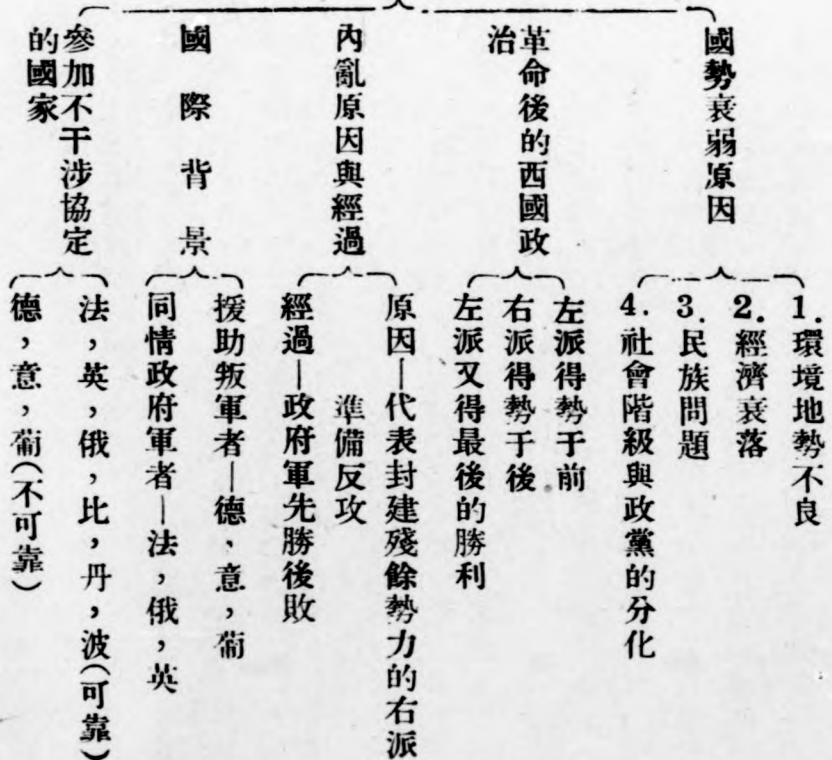 國勢衰弱原因
1.環境地勢不良
2.經濟衰落
3.民族問題
4.社會階級與政黨的分化
革命後的西國政
治
左派得勢于前
右派得勢于後
左派又得最後的勝利
內亂原因與經過
原因—代表封建殘餘勢力的右派
準備反攻
經過—政府軍先勝後敗
國際背景
援助叛軍者—德、意,葡
同情政府軍者—法,俄,英
參加不干涉協定
的國家
法,英,俄,比,丹,波(可靠)
德,意,葡(不可靠)